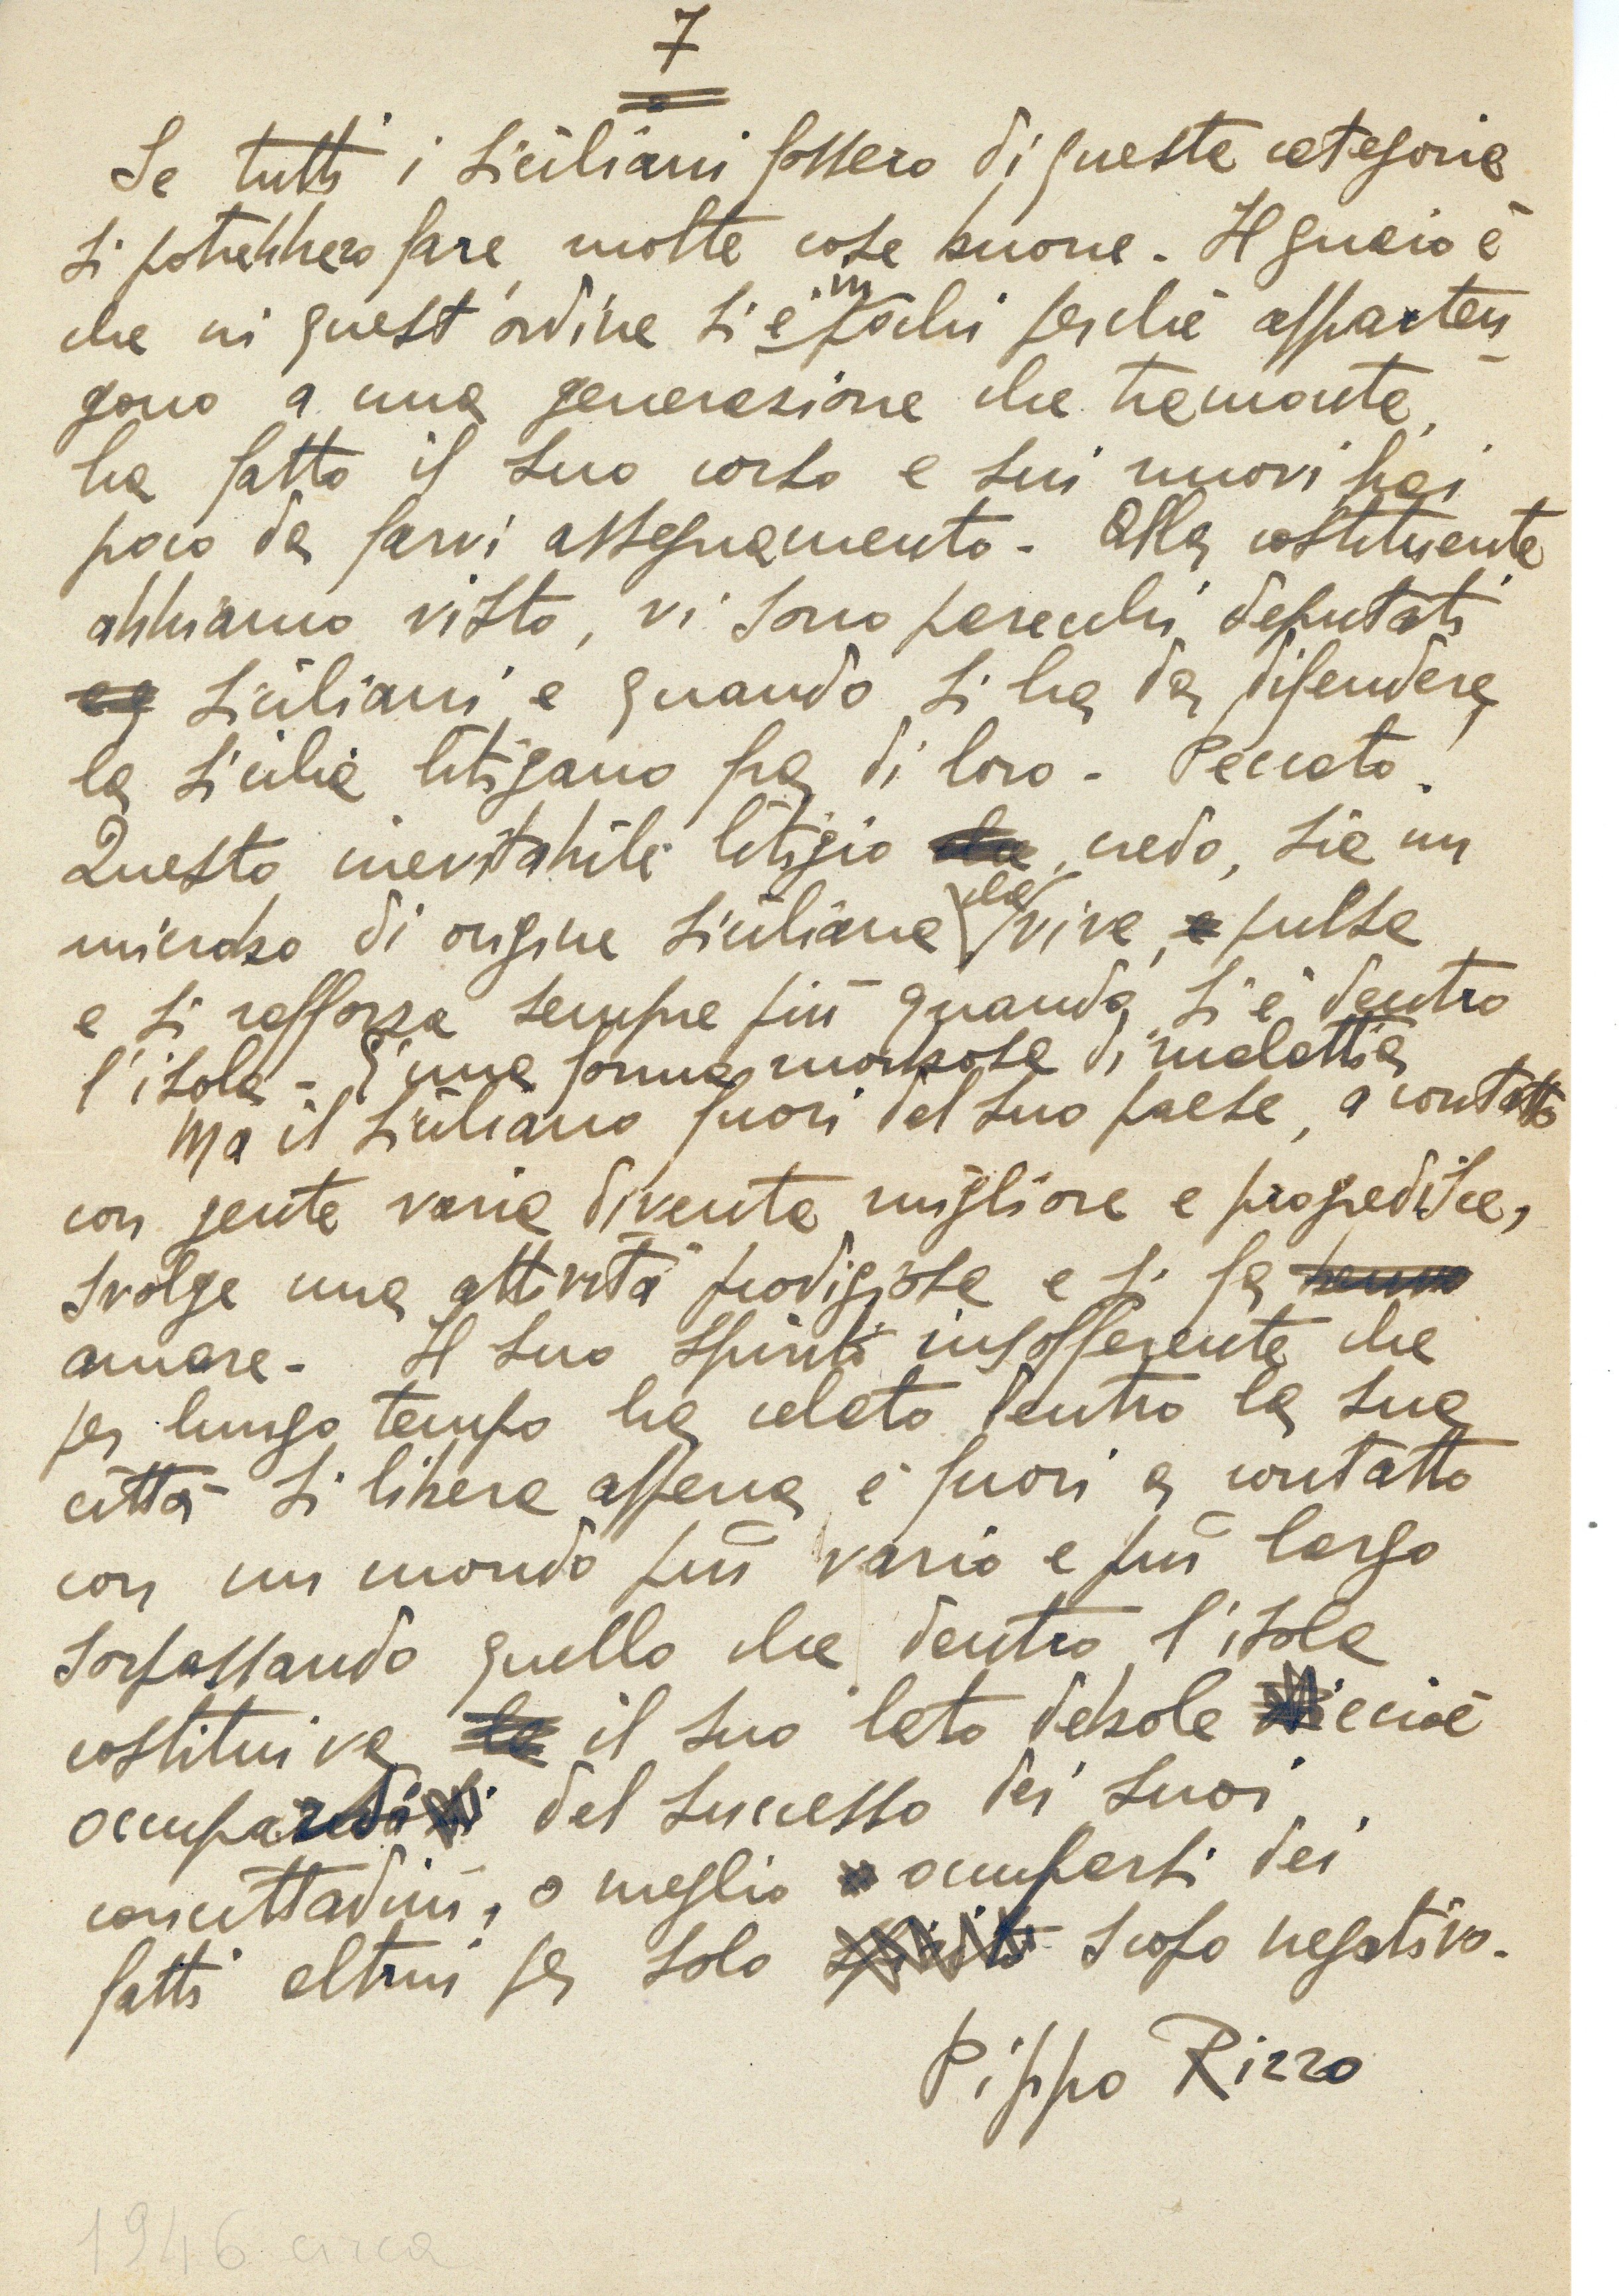 7
Se tutti i siciliani fossero di questa categoria
si potrebbero fare molte cose buone. Il guaio è
che in quest'ordine si è in pochi perchè apparten
gono a una generazione che tramonta,
ha fatto il suo corso e sui nuovi hai
poco da farvi assegnamento. Alla costituente
abbiamo visto, vi sono parecchi deputati
siciliani e quando si ha da difendere
la Sicilia litigano fra di loro. Peccato!
Questo inevitabile litigio, credo, sia un
microbo di origine siciliana che vive, pulsa
e si rafforza sempre più quando si è dentro
l'isola. È una forma morbosa di malattia
Ma il siciliano fuori del suo paese, a contatto
con gente varia diventa migliore e progredisce,
svolge una attività prodigiosa e si fa
amare. Il suo spirito insofferente che
per lungo tempo ha celato dentro la sua
città si libera appena è fuori a contatto
con un mondo più vario e più largo
sorpassando quello che dentro l'isola
costituiva il suo lato debole e cioè
occupandosi del successo dei suoi
concittadini, o meglio occuparsi dei
fatti altrui per solo scopo negativo.
Pippo Rizzo
1946 circa